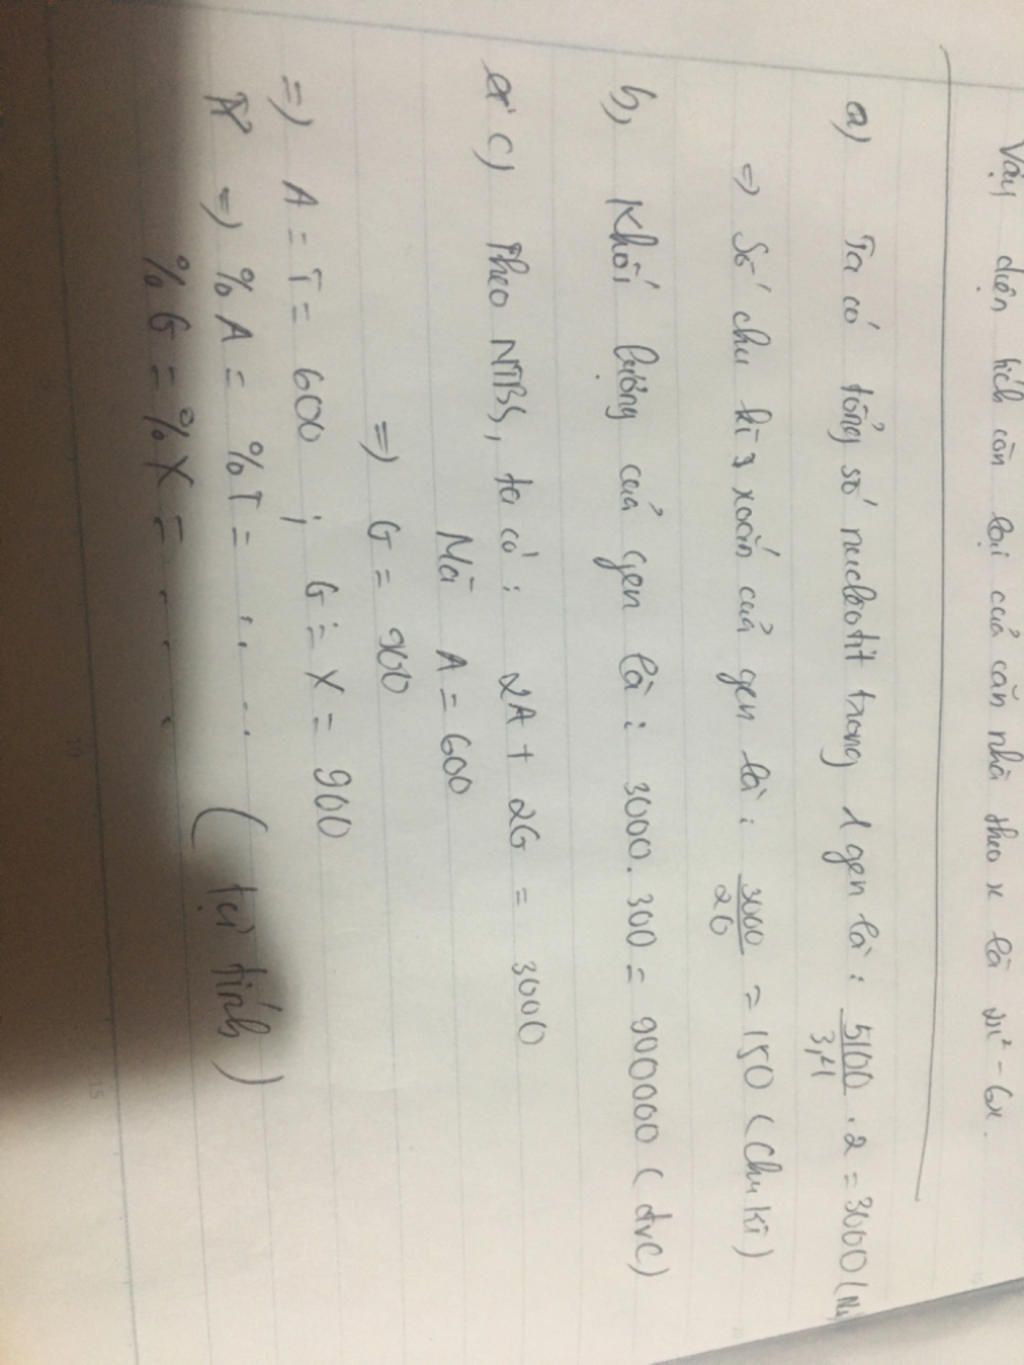 Vậy diện tích còn lại của căn nhà theo x là x² - 6x.
a) Ta có tổng số nucleotit trong 1 gen là: 5100/3,4 . 2 = 3000 (Nu)
=> Số chu kì xoắn của gen là: 3000/20 = 150 (Chu kì)
b, Khối lượng của gen là: 3000. 300 = 900000 (đvC)
c) Theo NTBS, ta có: 2A + 2G = 3000
Mà A = 600
=> G = 900
=> A = T = 600 ; G = X = 900
=> % A = % T = .... (tự tính)
% G = % X = ....
10
15